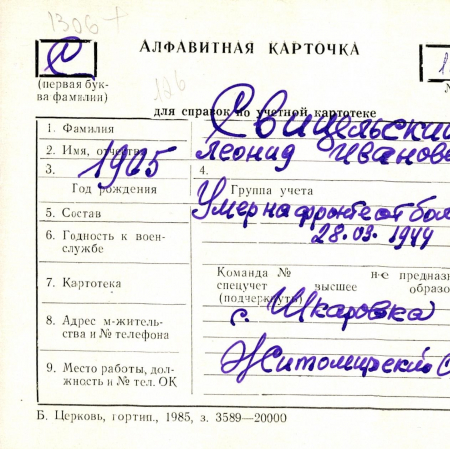 1306
С
АЛФАВИТНАЯ КАРТОЧКА
(первая бук-
ва фамилии)
126
для справок по учетной картотеке
1. Фамилия Свидельский
2. Имя, отчество Леонид Иванов
3. 1905 4.
Год рождения Группа учета
5. Состав Умер на фронте от бол
6. Годность к воен-
службе
28.03.1944
Команда № н-е предназ
7. Картотека спецучет высшее образо
(подчеркнуть)
с. Шкаровка
8. Адрес м-житель-
ства и № телефона
Житомирский
9. Место работы, дол-
жность и № тел. ОК
Б. Церковь, гортип., 1985, з. 3589—20000